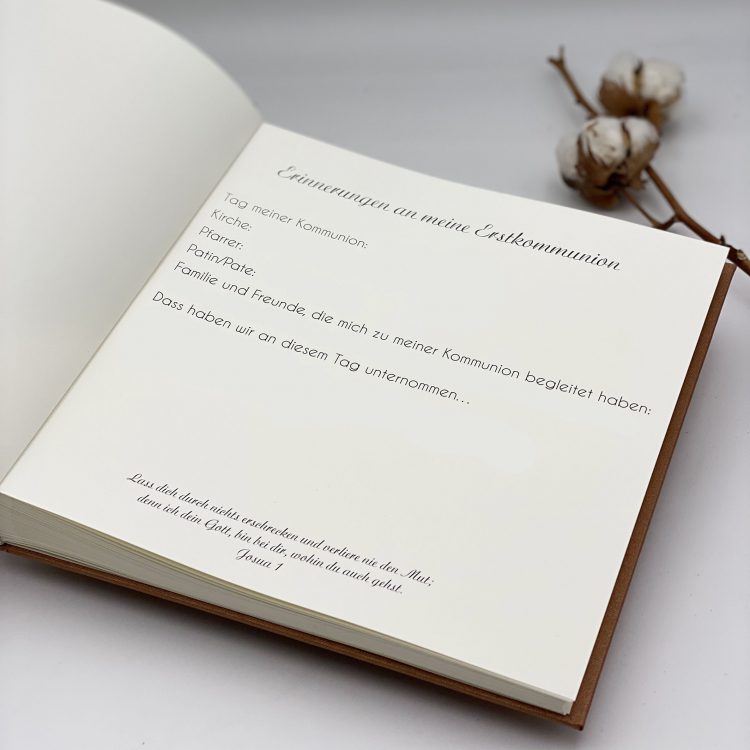 Erinnerungen an meine Erstkommunion
Tag meiner Kommunion:
Kirche:
Pfarrer:
Patin/Pate:
Familie und Freunde, die mich zu meiner Kommunion begleitet haben:
Dass haben wir an diesem Tag unternommen...
Lass dich durch nichts erschrecken und verliere nie den Mut;
denn ich dein Gott, bin bei dir, wohin du auch gehst.
Josua 1